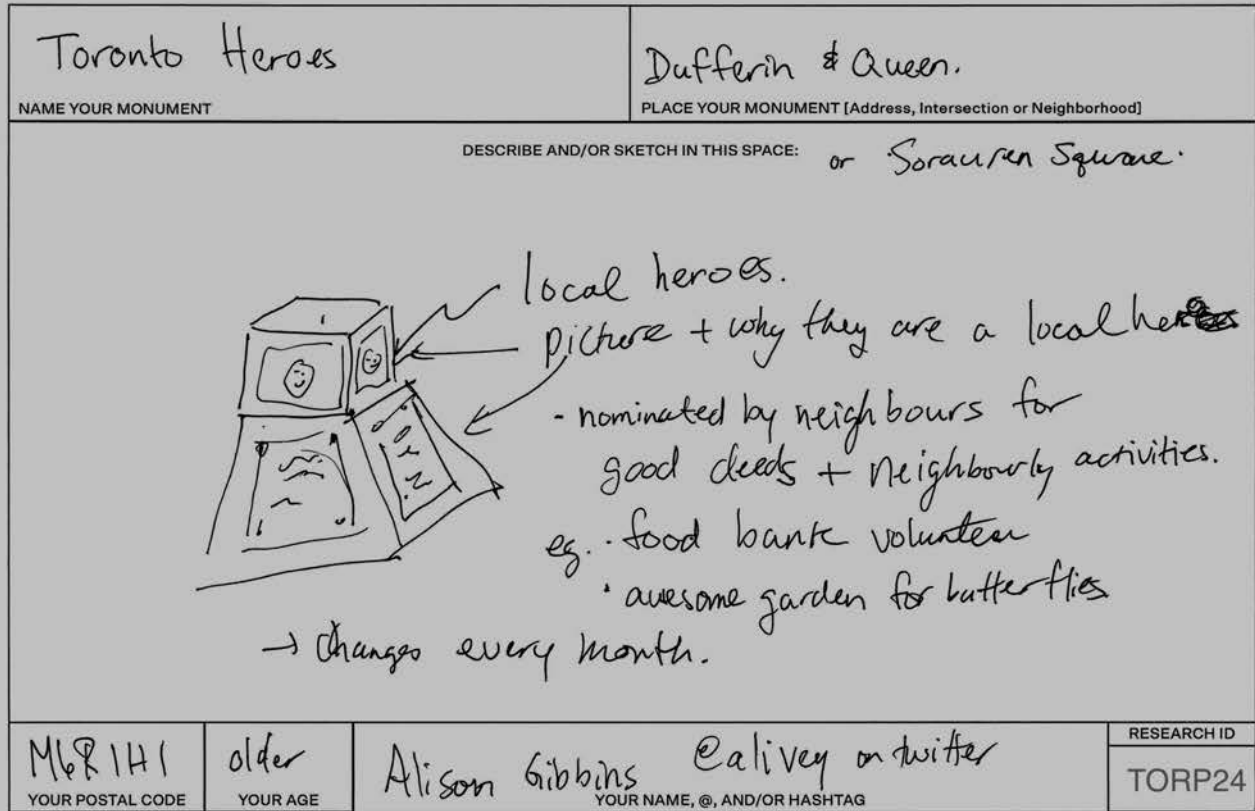 Toronto Heroes
NAME YOUR MONUMENT
Dufferin & Queen.
PLACE YOUR MONUMENT [Address, Intersection or Neighborhood]
DESCRIBE AND/OR SKETCH IN THIS SPACE:
or Sorauren Square.
local heroes.
picture + why they are a local hero
- nominated by neighbours for
good deeds + neighbourly activities.
eg. · food bank volunteer
· awesome garden for butterflies
→ Changes every month.
M6R1H1
YOUR POSTAL CODE
older
YOUR AGE
Alison Gibbins @alivey on twitter
YOUR NAME, @, AND/OR HASHTAG
RESEARCH ID
TORP24